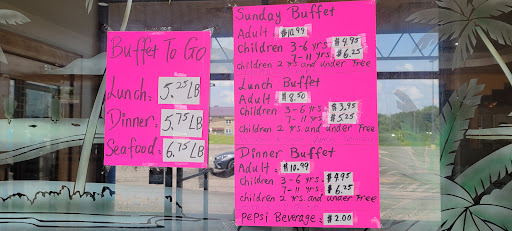 Buffet To Go
Lunch: 5.25 LB
Dinner: 5.75 LB
Seafood: 6.75 LB
Sunday Buffet
Adult $10.99
Children 3-6 yrs. $4.95
7-11 yrs. $6.25
children 2 yrs and under Free
Lunch Buffet
Adult $8.50
Children 3-6 yrs. $3.95
7-11 yrs. $5.25
children 2 yrs. and under Free
Dinner Buffet
Adult: $10.99
children 3-6 yrs. $4.95
7-11 yrs. $6.25
children 2 yrs and under Free
Pepsi Beverage: $2.00